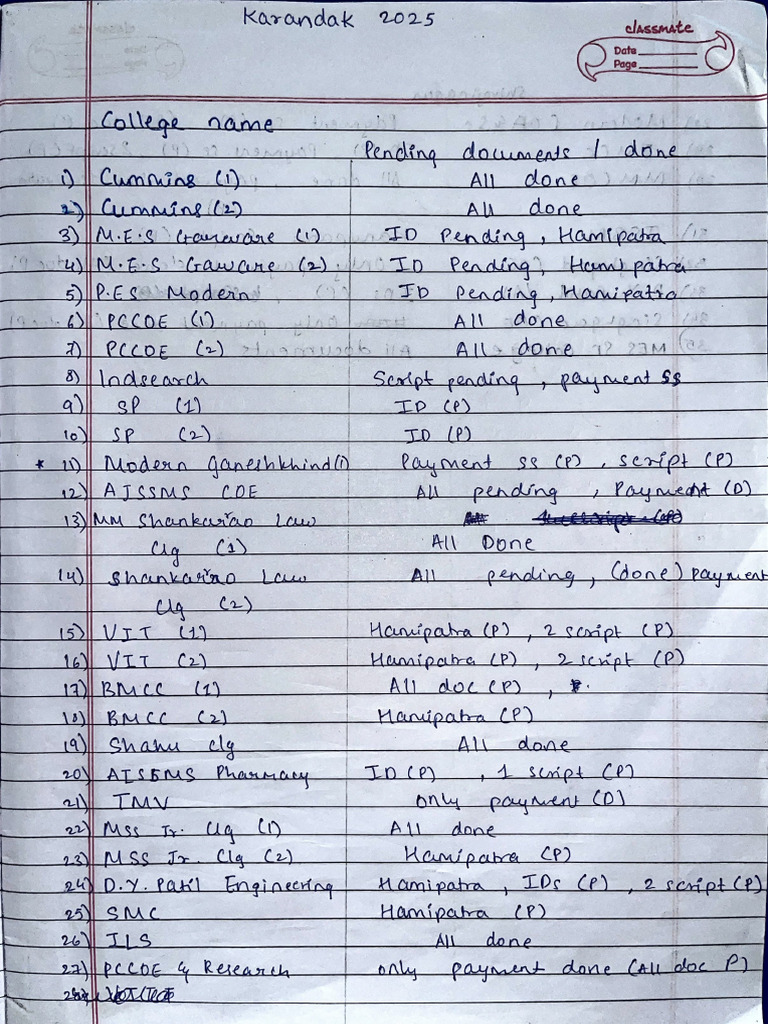 Karandak 2025
classmate
Date
Page
College name
Pending documents / done
1) Cummins (1) All done
2) Cummins (2) All done
3) M.E.S Garware (1) ID Pending, Hamipatra
4) M.E.S Gaware (2) ID Pending, Hamipatra
5) P.ES Modern ID pending, Hamipatra
6) PCCOE (1) All done
7) PCCOE (2) All done
8) Indsearch Script pending, payment ss
9) SP (1) ID (P)
10) SP (2) ID (P)
* 11) Modern Ganeshkhind(1) Payment ss (P), script (P)
12) AISSMS COE All pending, Payment (D)
13) MM Shankarao Law
Clg (1) All Done
14) Shankarrao Law All pending, (done) payment
Clg (2)
15) VIT (1) Hamipatra (P), 2 script (P)
16) VIT (2) Hamipatra (P), 2 script (P)
17) BMCC (1) All doc (P),
18) BMCC (2) Hamipatra (P)
19) Shahu clg All done
20) AISSMS Pharmacy ID (P), 1 script (P)
21) TMV only payment (D)
22) MSS Jr. Clg (1) All done
23) MSS Jr. Clg (2) Hamipatra (P)
24) D.Y. Patil Engineering Hamipatra, IDs (P), 2 script (P)
25) SMC Hamipatra (P)
26) ILS All done
27) PCCOE & Research only payment done (All doc P)